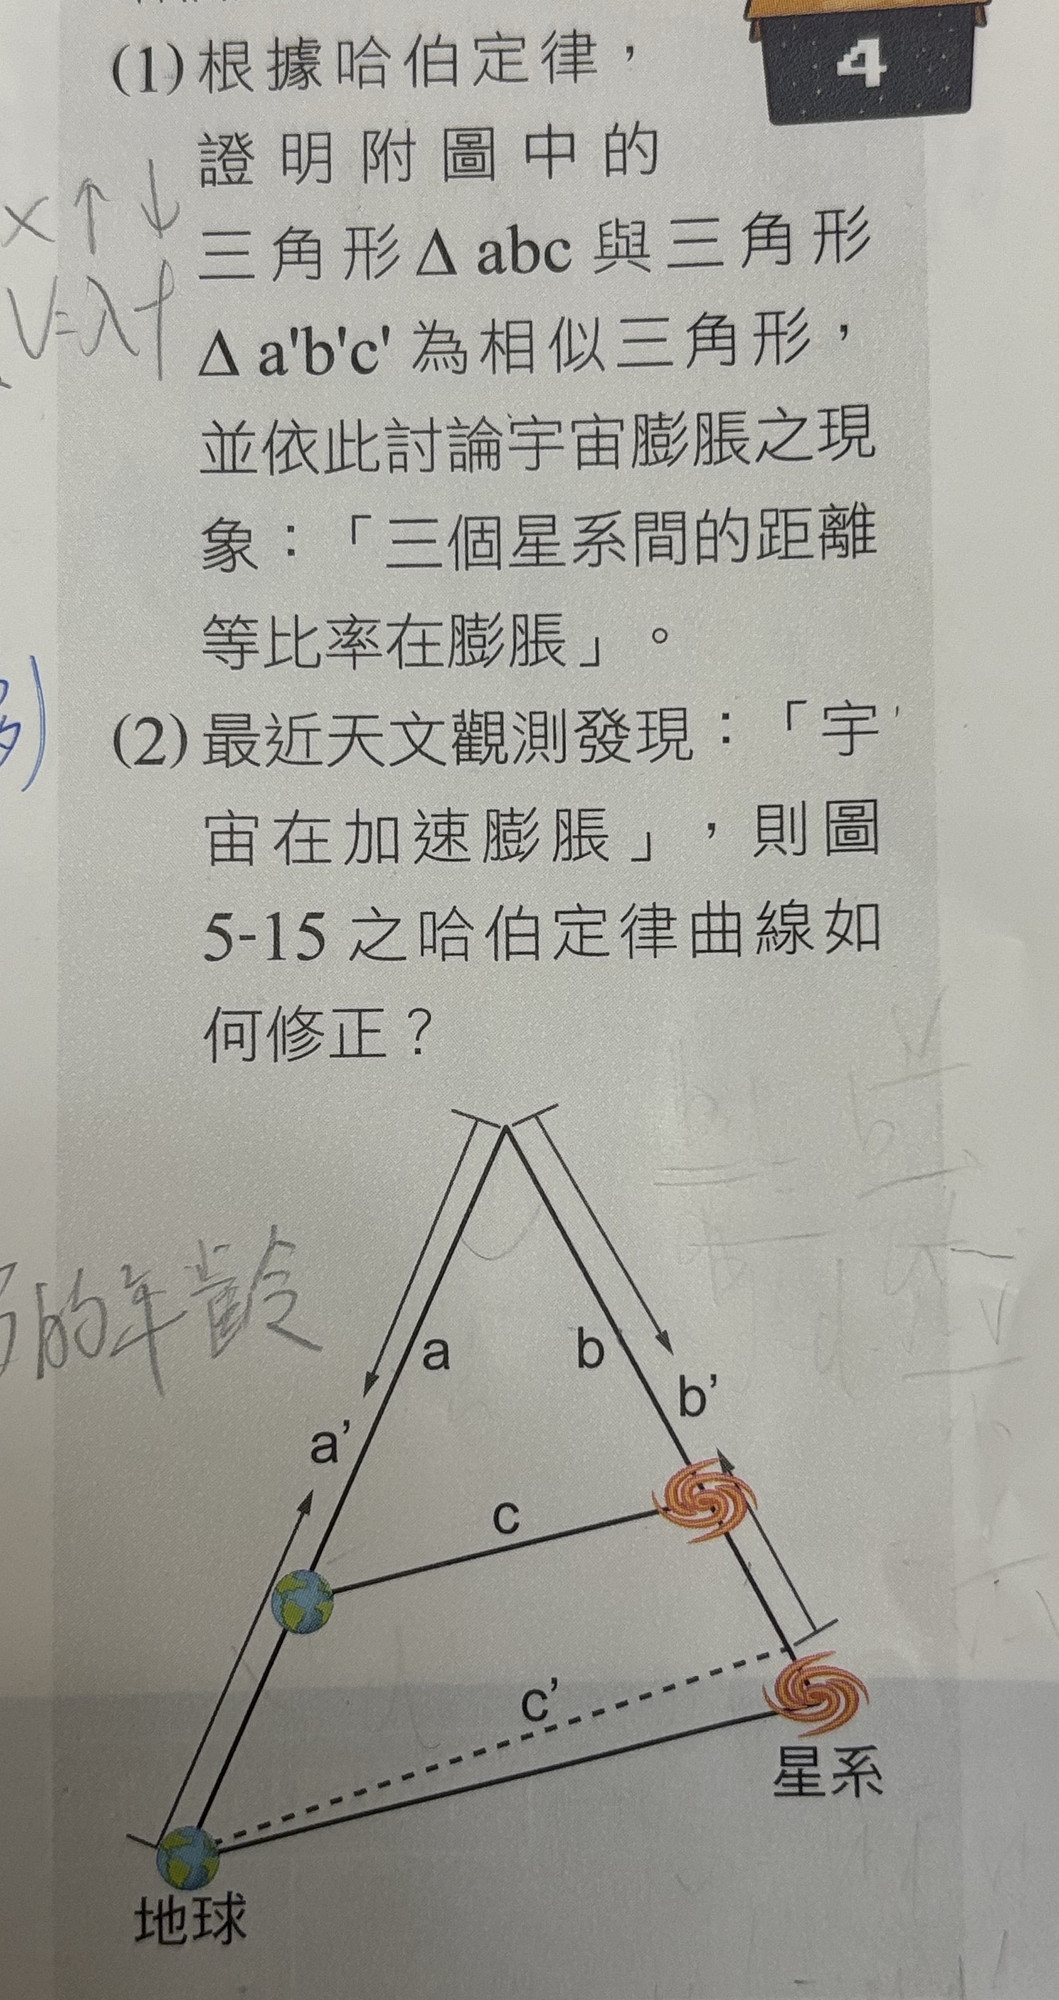 4
(1)根據哈伯定律，
證明附圖中的
三角形Δ abc 與三角形
Δ a'b'c' 為相似三角形，
並依此討論宇宙膨脹之現
象：「三個星系間的距離
等比率在膨脹」。
(2)最近天文觀測發現：「宇
宙在加速膨脹」，則圖
5-15 之哈伯定律曲線如
何修正？
x↑↓
V=λf
的年齡
a
b
b'
a'
c
c'
星系
地球